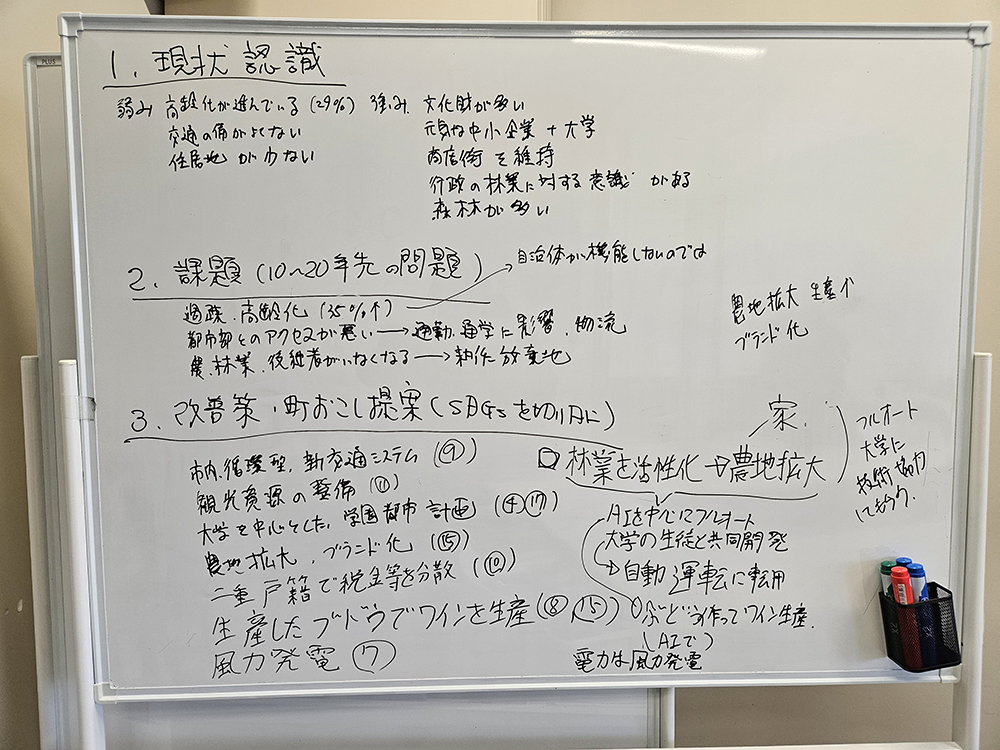 PLUS
1. 現状認識
弱み 高齢化が進んでいる (29%) 強み 文化財が多い
交通の便がよくない 元気な中小企業 + 大学
住居地が少ない 商店街を維持
行政の林業に対する意識がある
森林が多い
2. 課題 (10~20年先の問題) 自治体が機能しないのでは
過疎、高齢化 (35%↑)
都市部とのアクセスが悪い → 通勤、通学に影響、物流
農、林業、後継者がいなくなる → 耕作放棄地
農地拡大 生産↑
ブランド化
3. 改善策・町おこし提案 (SDGsを切り口に)
市内、循環型、新交通システム (⑨)
観光資源の整備 (⑪)
大学を中心とした、学園都市計画 (④⑰)
農地拡大、ブランド化 (⑮)
二重戸籍で税金等を分散 (⑩)
生産したブドウでワインを生産 (⑧⑮)
風力発電 (⑦)
家.
□ 林業を活性化 → 農地拡大
フルオート
大学に
技術協力
してもらう.
AIを中心にフルオート
大学の生徒と共同開発
→ 自動運転に転用
ぶどう作ってワイン生産.
(AIで)
電力は風力発電